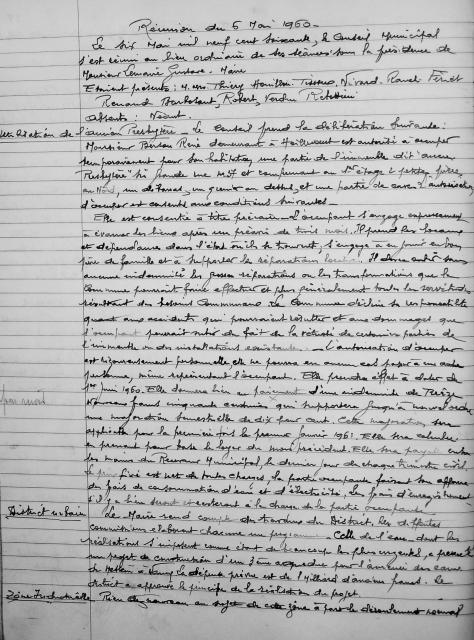 Réunion du 6 Mai 1960 -
Le six Mai mil neuf cent soixante, le Conseil Municipal
s'est réuni au lieu ordinaire de ses séances sous la présidence de
Monsieur Lemaire Gustave - Maire
Etaient présents : M. Mrs. Thiery
Renaud Robert, Verdun
Absents : Néant.
de l'ancien Presbytère - Le Conseil prend la délibération suivante :
Monsieur Berson René demeurant à est autorisé à occuper
temporairement pour son habitation, une partie de l'immeuble dit "ancien
Presbytère" sis rue et comprenant au 1er étage 2 petites pièces
au Nord, un un grenier au dessus, et une partie de cave. L'autorisation
d'occuper est consentie aux conditions suivantes -
Elle est consentie à titre précaire. L'occupant s'engage expressément
à évacuer les lieux après un préavis de trois mois. Il prend les locaux
et dépendances dans l'état où ils se trouvent, s'engage à en jouir en bon
père de famille et à supporter les réparations locatives. Il devra subir sans
aucune indemnité les grosses réparations ou les transformations que la
Commune pourrait faire effectuer et plus généralement toutes les servitudes
résultant des besoins communaux. La Commune décline sa responsabilité
quant aux accidents qui pourraient résulter et aux dommages que
l'occupant pourrait subir du fait de la vétusté de certaines parties de
l'immeuble ou des installations existantes. - L'autorisation d'occuper
est rigoureusement personnelle, elle ne pourra en aucun cas passer à une autre
personne, même représentant l'occupant. Elle prendra effet à dater du
1er juin 1960. Elle donnera lieu au paiement d'une indemnité de Treize
nouveaux francs cinquante centimes qui supportera jusqu'à nouvel ordre
une majoration semestrielle de dix pour cent. Cette majoration sera
appliquée pour la première fois le premier janvier 1961. Elle sera calculée
en prenant pour base le loyer du mois précédent. Elle sera payable entre
les mains du Receveur Municipal, le dernier jour de chaque trimestre civil.
Le prix fixé est net de toutes charges, la partie occupante faisant son affaire
des frais de consommation d'eau et d'électricité. Les frais d'enregistrement
s'il y a lieu seront et resteront à la charge de la partie occupante.
District urbain Le Maire rend compte des travaux du District, les différentes
commissions élaborent chacune un programme. Celle de l'eau dont les
réalisations s'imposent comme étant de beaucoup les plus urgentes, a présenté
un projet de construction d'un 2ème aqueduc pour l'amenée des eaux
de à Nancy. La dépense prévue est de 1 Milliard d'anciens francs. Le
district a approuvé le principe de la réalisation du projet.
Zone Industrielle Rien de nouveau au sujet de cette zône à part le déroulement normal